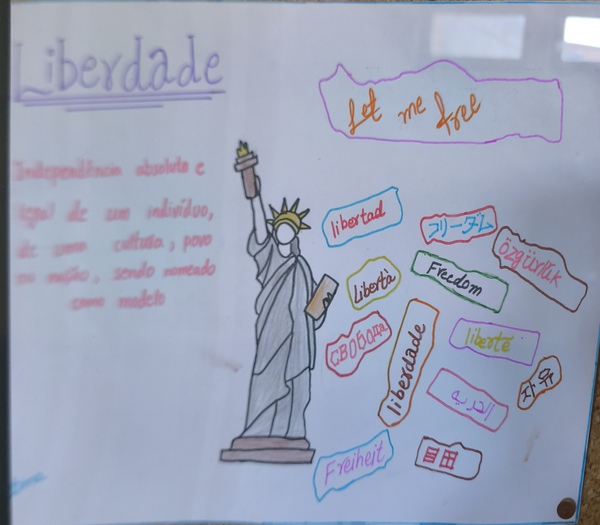 Liberdade
Independência absoluta e
legal de um indivíduo,
de uma cultura, povo
ou nação, sendo nomeado
como modelo
Let me free
libertad
フリーダム
özgürlük
Libertà
Freedom
свобода
liberdade
liberté
الحرية
자유
Freiheit
自由